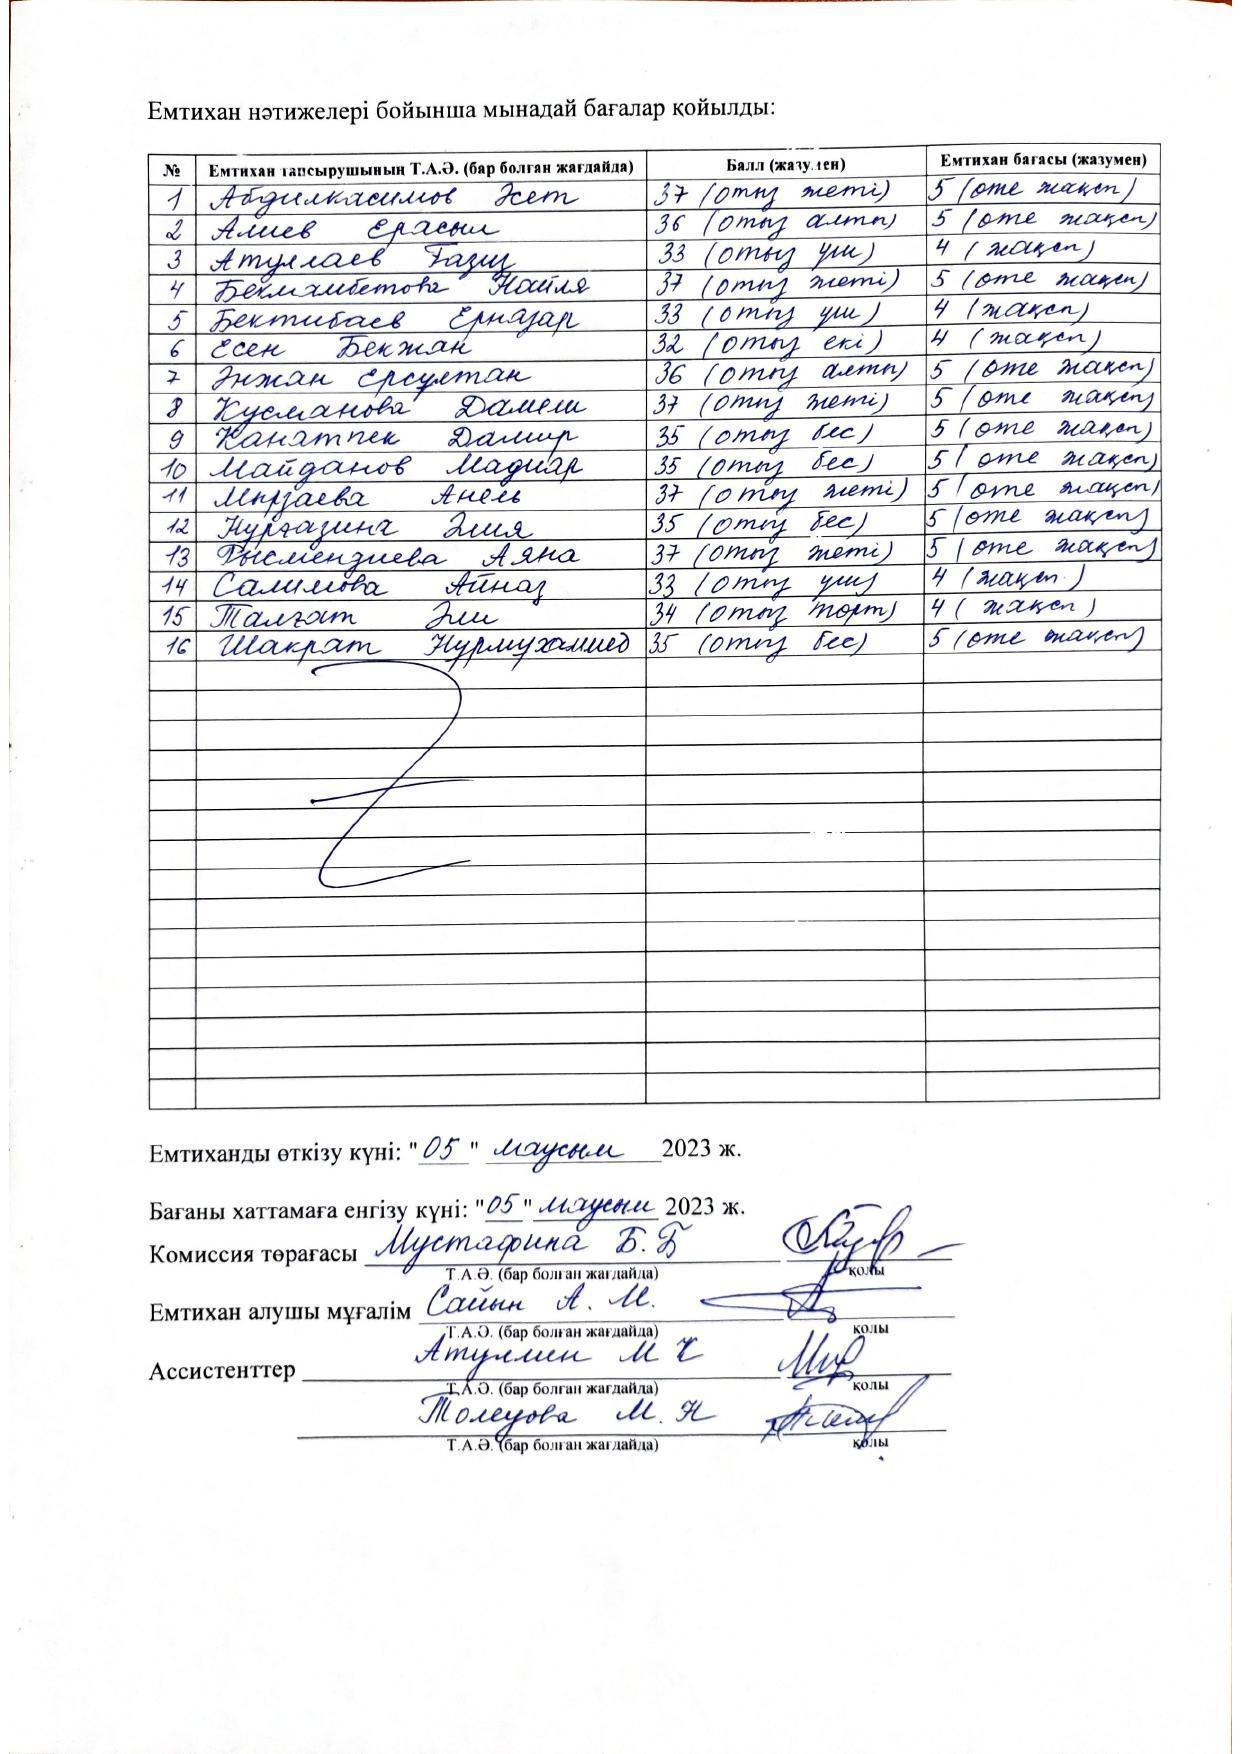 Емтихан нәтижелері бойынша мынадай бағалар қойылды:
№ Емтихан тапсырушының Т.А.Ә. (бар болған жағдайда) Балл (жазумен) Емтихан бағасы (жазумен)
1 Абдилкасимов Әсет 37 (отыз жеті) 5 (өте жақсы)
2 Алиев Ерасыл 36 (отыз алты) 5 (өте жақсы)
3 Атуллаев Ғазиз 33 (отыз үш) 4 (жақсы)
4 Бекмамбетова Найля 37 (отыз жеті) 5 (өте жақсы)
5 Бектибаев Ерназар 33 (отыз үш) 4 (жақсы)
6 Есен Бекжан 32 (отыз екі) 4 (жақсы)
7 Әнжан Ерсұлтан 36 (отыз алты) 5 (өте жақсы)
8 Кусманова Дамеш 37 (отыз жеті) 5 (өте жақсы)
9 Қанатпек Дамир 35 (отыз бес) 5 (өте жақсы)
10 Майданов Мадияр 35 (отыз бес) 5 (өте жақсы)
11 Мырзаева Анель 37 (отыз жеті) 5 (өте жақсы)
12 Нурғазина Әлия 35 (отыз бес) 5 (өте жақсы)
13 Рысмендиева Аяна 37 (отыз жеті) 5 (өте жақсы)
14 Салимова Айназ 33 (отыз үш) 4 (жақсы)
15 Талғат Әли 34 (отыз төрт) 4 (жақсы)
16 Шакрат Нурмухаммед 35 (отыз бес) 5 (өте жақсы)
Емтиханды өткізу күні: "05" маусым 2023 ж.
Бағаны хаттамаға енгізу күні: "05" маусым 2023 ж.
Комиссия төрағасы Мустафина Б.Б
Т.А.Ә. (бар болған жағдайда) қолы
Емтихан алушы мұғалім Сайын А. М.
Т.А.Ә. (бар болған жағдайда) қолы
Ассистенттер Атулмин М Қ
Т.А.Ә. (бар болған жағдайда) қолы
Толеуова М. Н
Т.А.Ә. (бар болған жағдайда) қолы